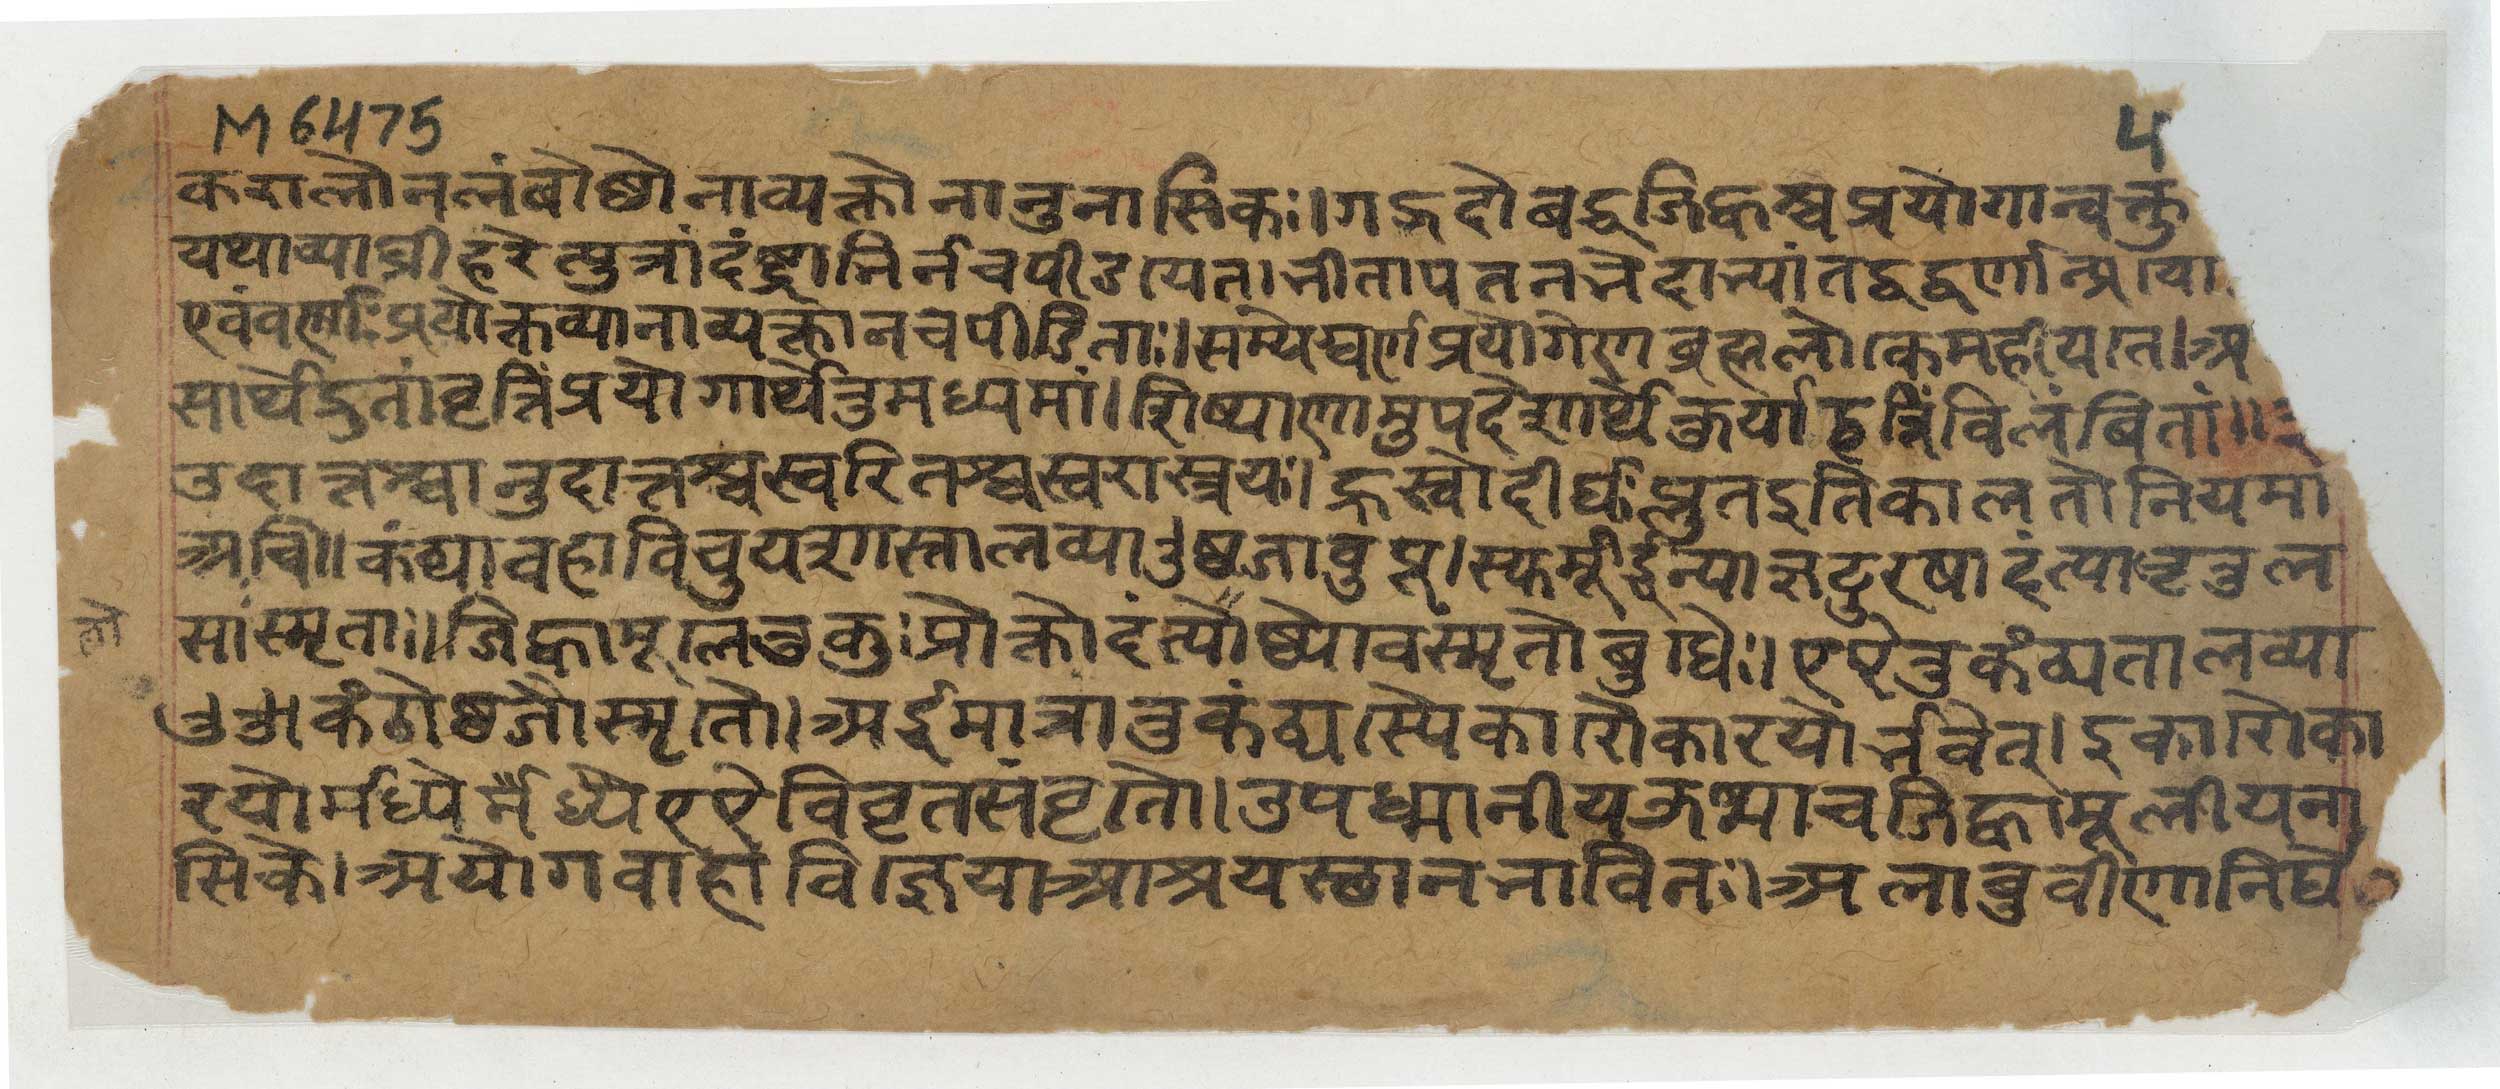 M 6475
५
करालो न लंबोष्ठो नाव्यक्तो नानुनासिकः। गद्गदो बद्धजिह्वश्च प्रयोगान्वक्तु
यथा व्याघ्री हरेत्पुत्रां दंष्ट्राभिर्न च पीडयेत्। भीता पतनभेदाभ्यां तद्वद्वर्णान्प्रयो
एवं वर्णाः प्रयोक्तव्या नाव्यक्ता न च पीडिताः। सम्यग्वर्णप्रयोगेण ब्रह्मलोके महीयते। अ
सार्थे द्रुतां वृत्तिं प्रयोगार्थे तु मध्यमां। शिष्याणामुपदेशार्थे कुर्याद्वृत्तिं विलंबितां॥
उदात्तश्चानुदात्तश्च स्वरितश्च स्वरास्त्रयः। ह्रस्वो दीर्घः प्लुत इति कालतो नियमा
अचि॥ कंठ्यावहाविचुयशास्तालव्या उष्ठजावुपू। स्युर्मूर्द्धन्या ऋटुरषा दंत्या ऌतुल
सां स्मृताः॥ जिह्वामूले तु कुः प्रोक्तो दंत्योष्ठ्यो वः स्मृतो बुधैः। एऐ तु कंठ्यतालव्या
ओऔ कंठोष्ठजौ स्मृतौ। अर्द्धमात्रा तु कंठ्यस्यैकारौकारयोर्भवेत्। इकारोका
रयोर्मध्ये र्मध्ये एऐ विवृतसंवृतौ। उपध्मानीय ऊष्मा च जिह्वामूलीयना
सिके। अयोगवाहा विज्ञेया आश्रयस्थानभाविनः। अलाबुवीणानिर्घो
लो